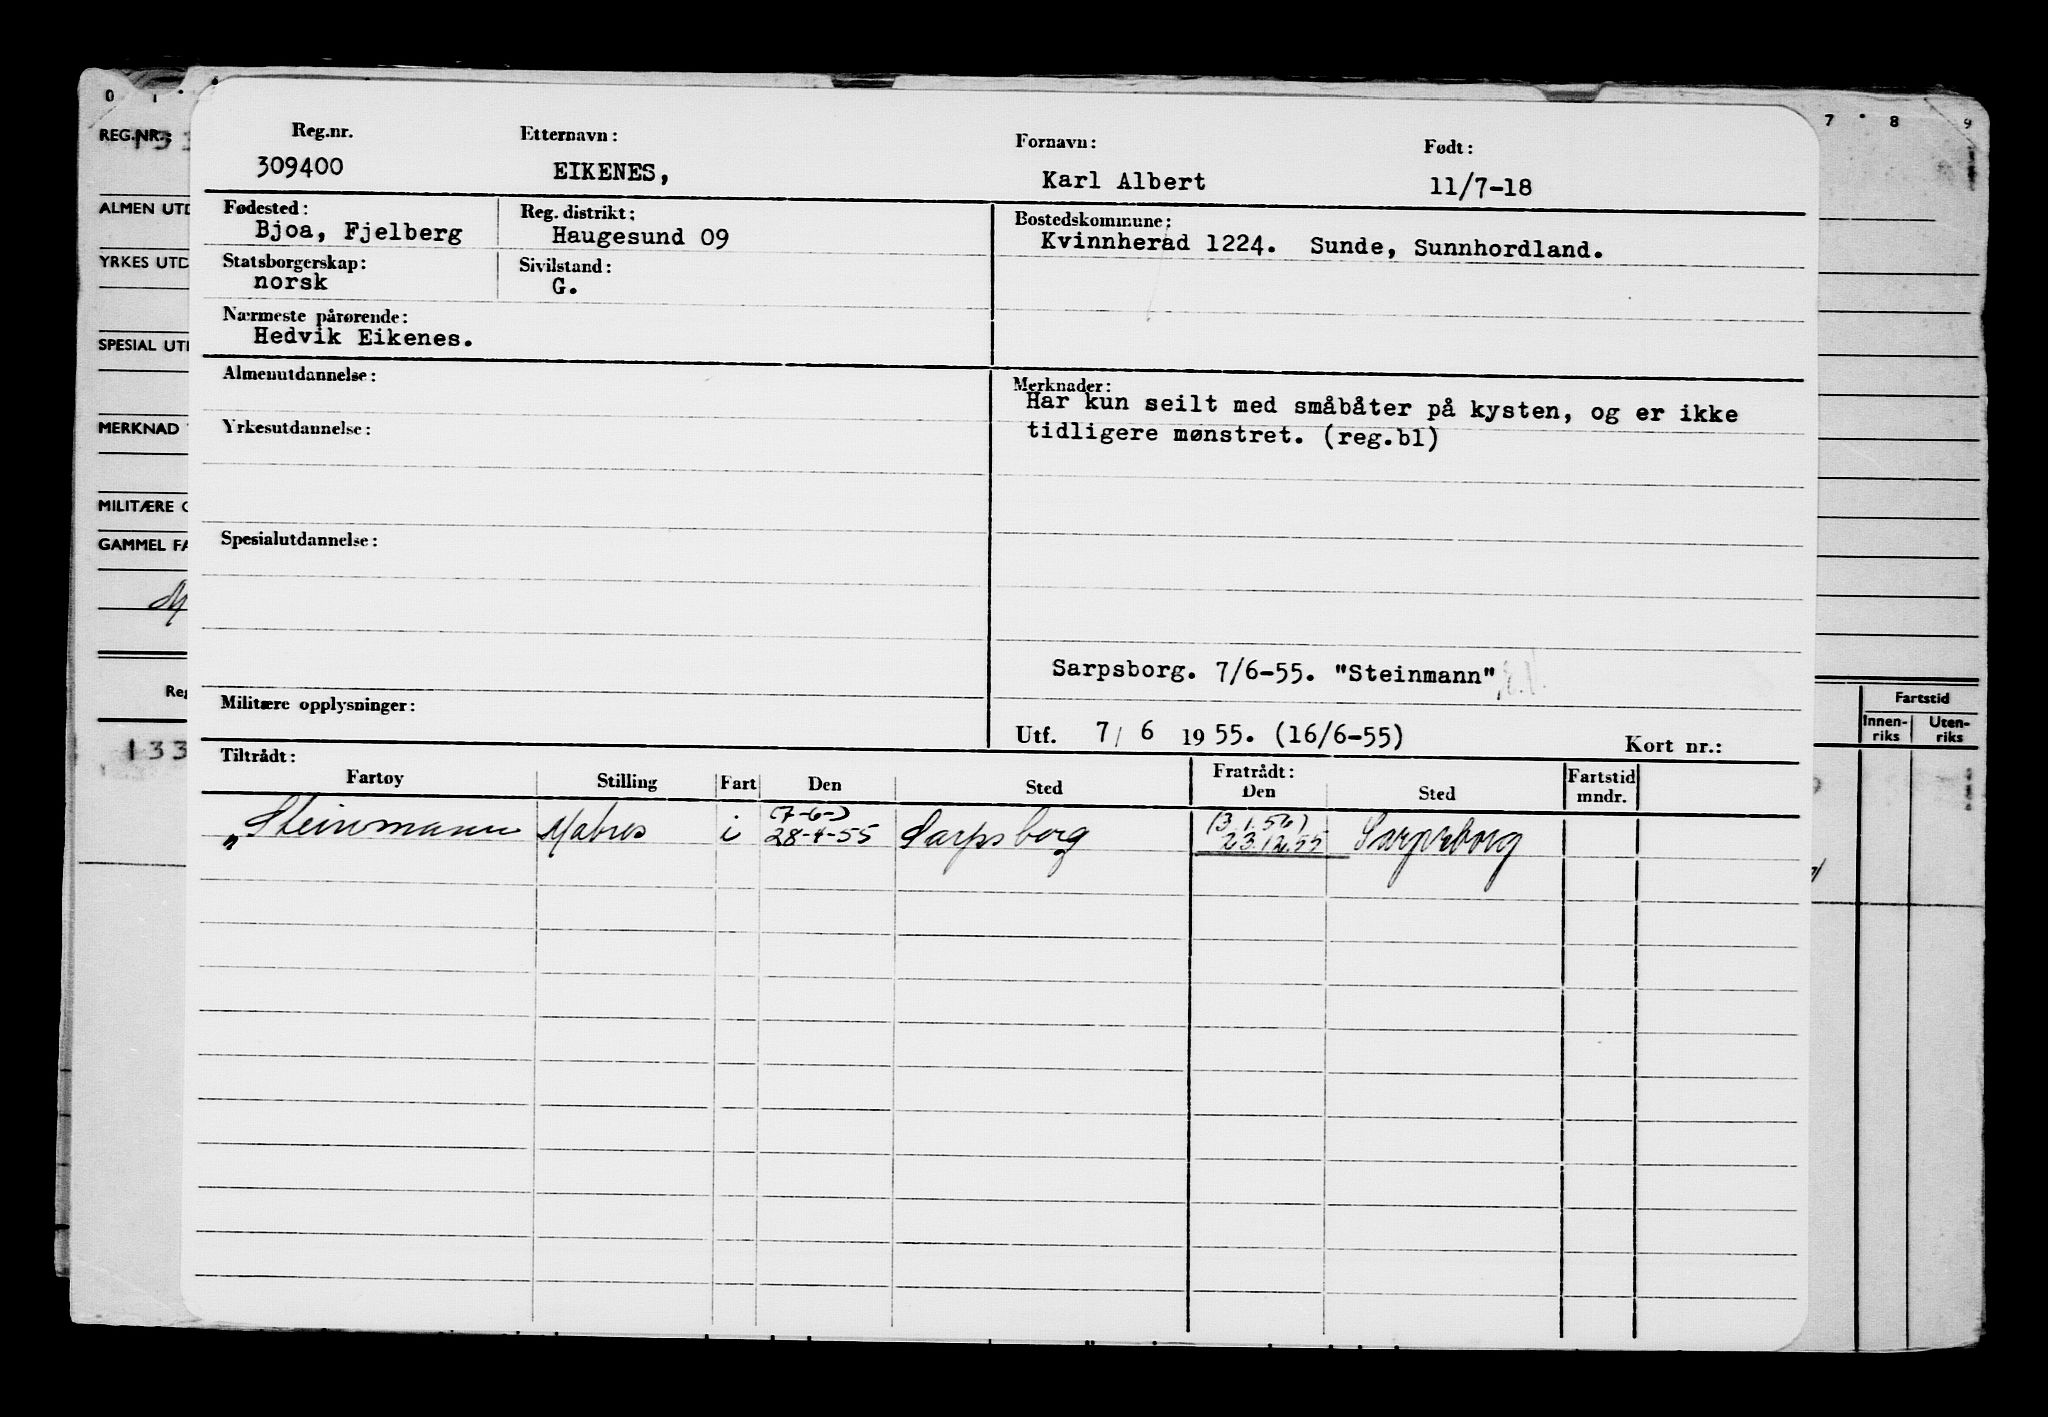 0 1 7 8 9
REG.NR.:
Reg.nr. Etternavn: Fornavn: Født:
309400 EIKENES, Karl Albert 11/7-18
ALMEN UTD
Fødested: Reg. distrikt: Bostedskommune:
Bjoa, Fjelberg Haugesund 09 Kvinnherad 1224. Sunde, Sunnhordland.
YRKES UTD
Statsborgerskap: Sivilstand:
norsk G.
Nærmeste pårørende:
Hedvik Eikenes.
SPESIAL UT
Almenutdannelse: Merknader:
Har kun seilt med småbåter på kysten, og er ikke
MERKNAD
Yrkesutdannelse: tidligere mønstret. (reg.bl)
MILITÆRE
GAMMEL
Spesialutdannelse:
Sarpsborg. 7/6-55. "Steinmann"
Reg
Fartstid
Militære opplysninger:
Innen-riks Uten-riks
Utf. 7/ 6 1955. (16/6-55) Kort nr.:
133
Tiltrådt: Fratrådt:
Fartøy Stilling Fart Den Sted Den Sted Fartstid mndr.
(7-6-) (3.1.56)
„Steinmann Matros i 28-4-55 Sarpsborg 23.12.55 Sarpsborg